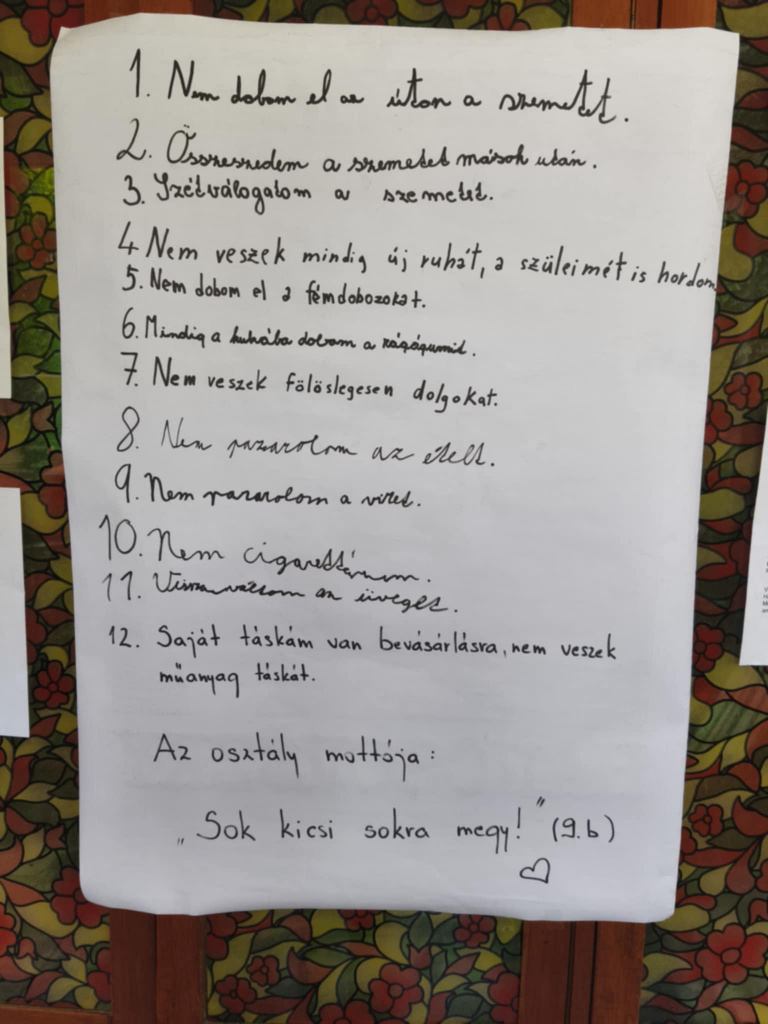 1. Nem dobom el az úton a szemetet.
2. Összeszedem a szemetet mások után.
3. Szétválogatom a szemetet.
4. Nem veszek mindig új ruhát, a szüleimét is hordom.
5. Nem dobom el a fémdobozokat.
6. Mindig a kukába dobom a rágógumit.
7. Nem veszek fölöslegesen dolgokat.
8. Nem pazarolom az ételt.
9. Nem pazarolom a vizet.
10. Nem cigarettázom.
11. Visszaváltom az üveget.
12. Saját táskám van bevásárlásra, nem veszek
műanyag táskát.
Az osztály mottója:
„Sok kicsi sokra megy!" (9.b)